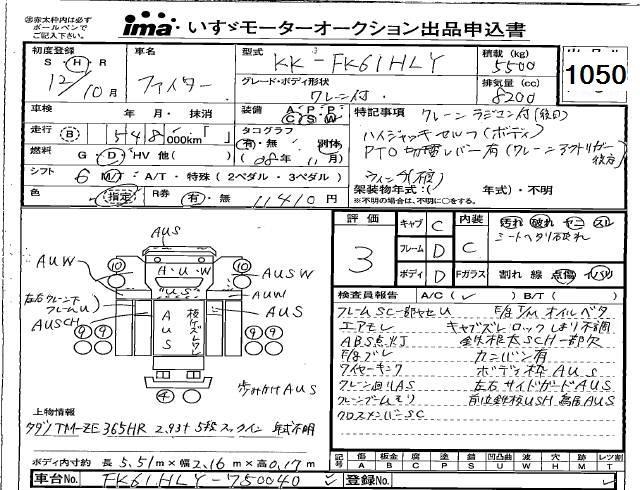 ㊟赤太枠内は必ず
ボールペンで
ご記入下さい。
ima いすゞモーターオークション出品申込書
初度登録
S・H・R
12/10月
車名
ファイター
型式
KK-FK61HLY
積載 (kg)
5500
1050
グレード・ボディ形状
クレーン付
排気量 (cc)
8200
車検
年・月・抹消
装備 A・P・P
C・S・W
特記事項 クレーン ラジコン付(後田)
走行 548,000km「 」
タコグラフ
有・無 別体
ハイジャッキセルフ(ボディ)
燃料 G・D・HV 他( )
(08年 11月)
PTO切替レバー有(クレーン アウトリガー
シフト 6 M/T・A/T・特殊(2ペダル・3ペダル)
ウィンチ(有)
架装物年式( 年式)・不明
色 指定 R券 有・無 11410円
※不明の場合は、不明に○をする。
評価
3
キャブ C
フレーム D
ボディ D
内装
C
Fガラス
汚れ 破れ ヤニ スレ
シートヘタリ破れ
割れ 線 点傷 イバリ
検査員報告 A/C( ✓ ) B/T( )
フレームSC一部ヤセU F/g T/M オイルベタ
エアモレ キャブズレ ロックしまり不調
ABS点灯 鉄板太SCH一部欠
F/gブレ カンバン有
ワイヤーキンク ボディ枠AUS
クレーン廻りAS 左右サイドガードAUS
クレーンブームモリ 前立鉄板USH 鳥居AUS
クロスメンバーSC
AUS
AUW
A・U・W
AUSW
"US"
AUW
左右クレーン下
フレームU
AUSCH
AUS
AUS
歩みかけAUS
⑩ ⑩
⑨ ⑨
④
上物情報
タダノTM-ZE365HR 2.93t 5段フックイン 年式不明
ボディ内寸約 長 5.51m×幅 2.16m×高 0.17m
記号 傷 A 板金 B 腐 C 塗 P 錆 S 凹凸曲 U 波 W 穴 H 跡 M 欠 T レツ割
車台No. FK61HLY-750040
登録No.